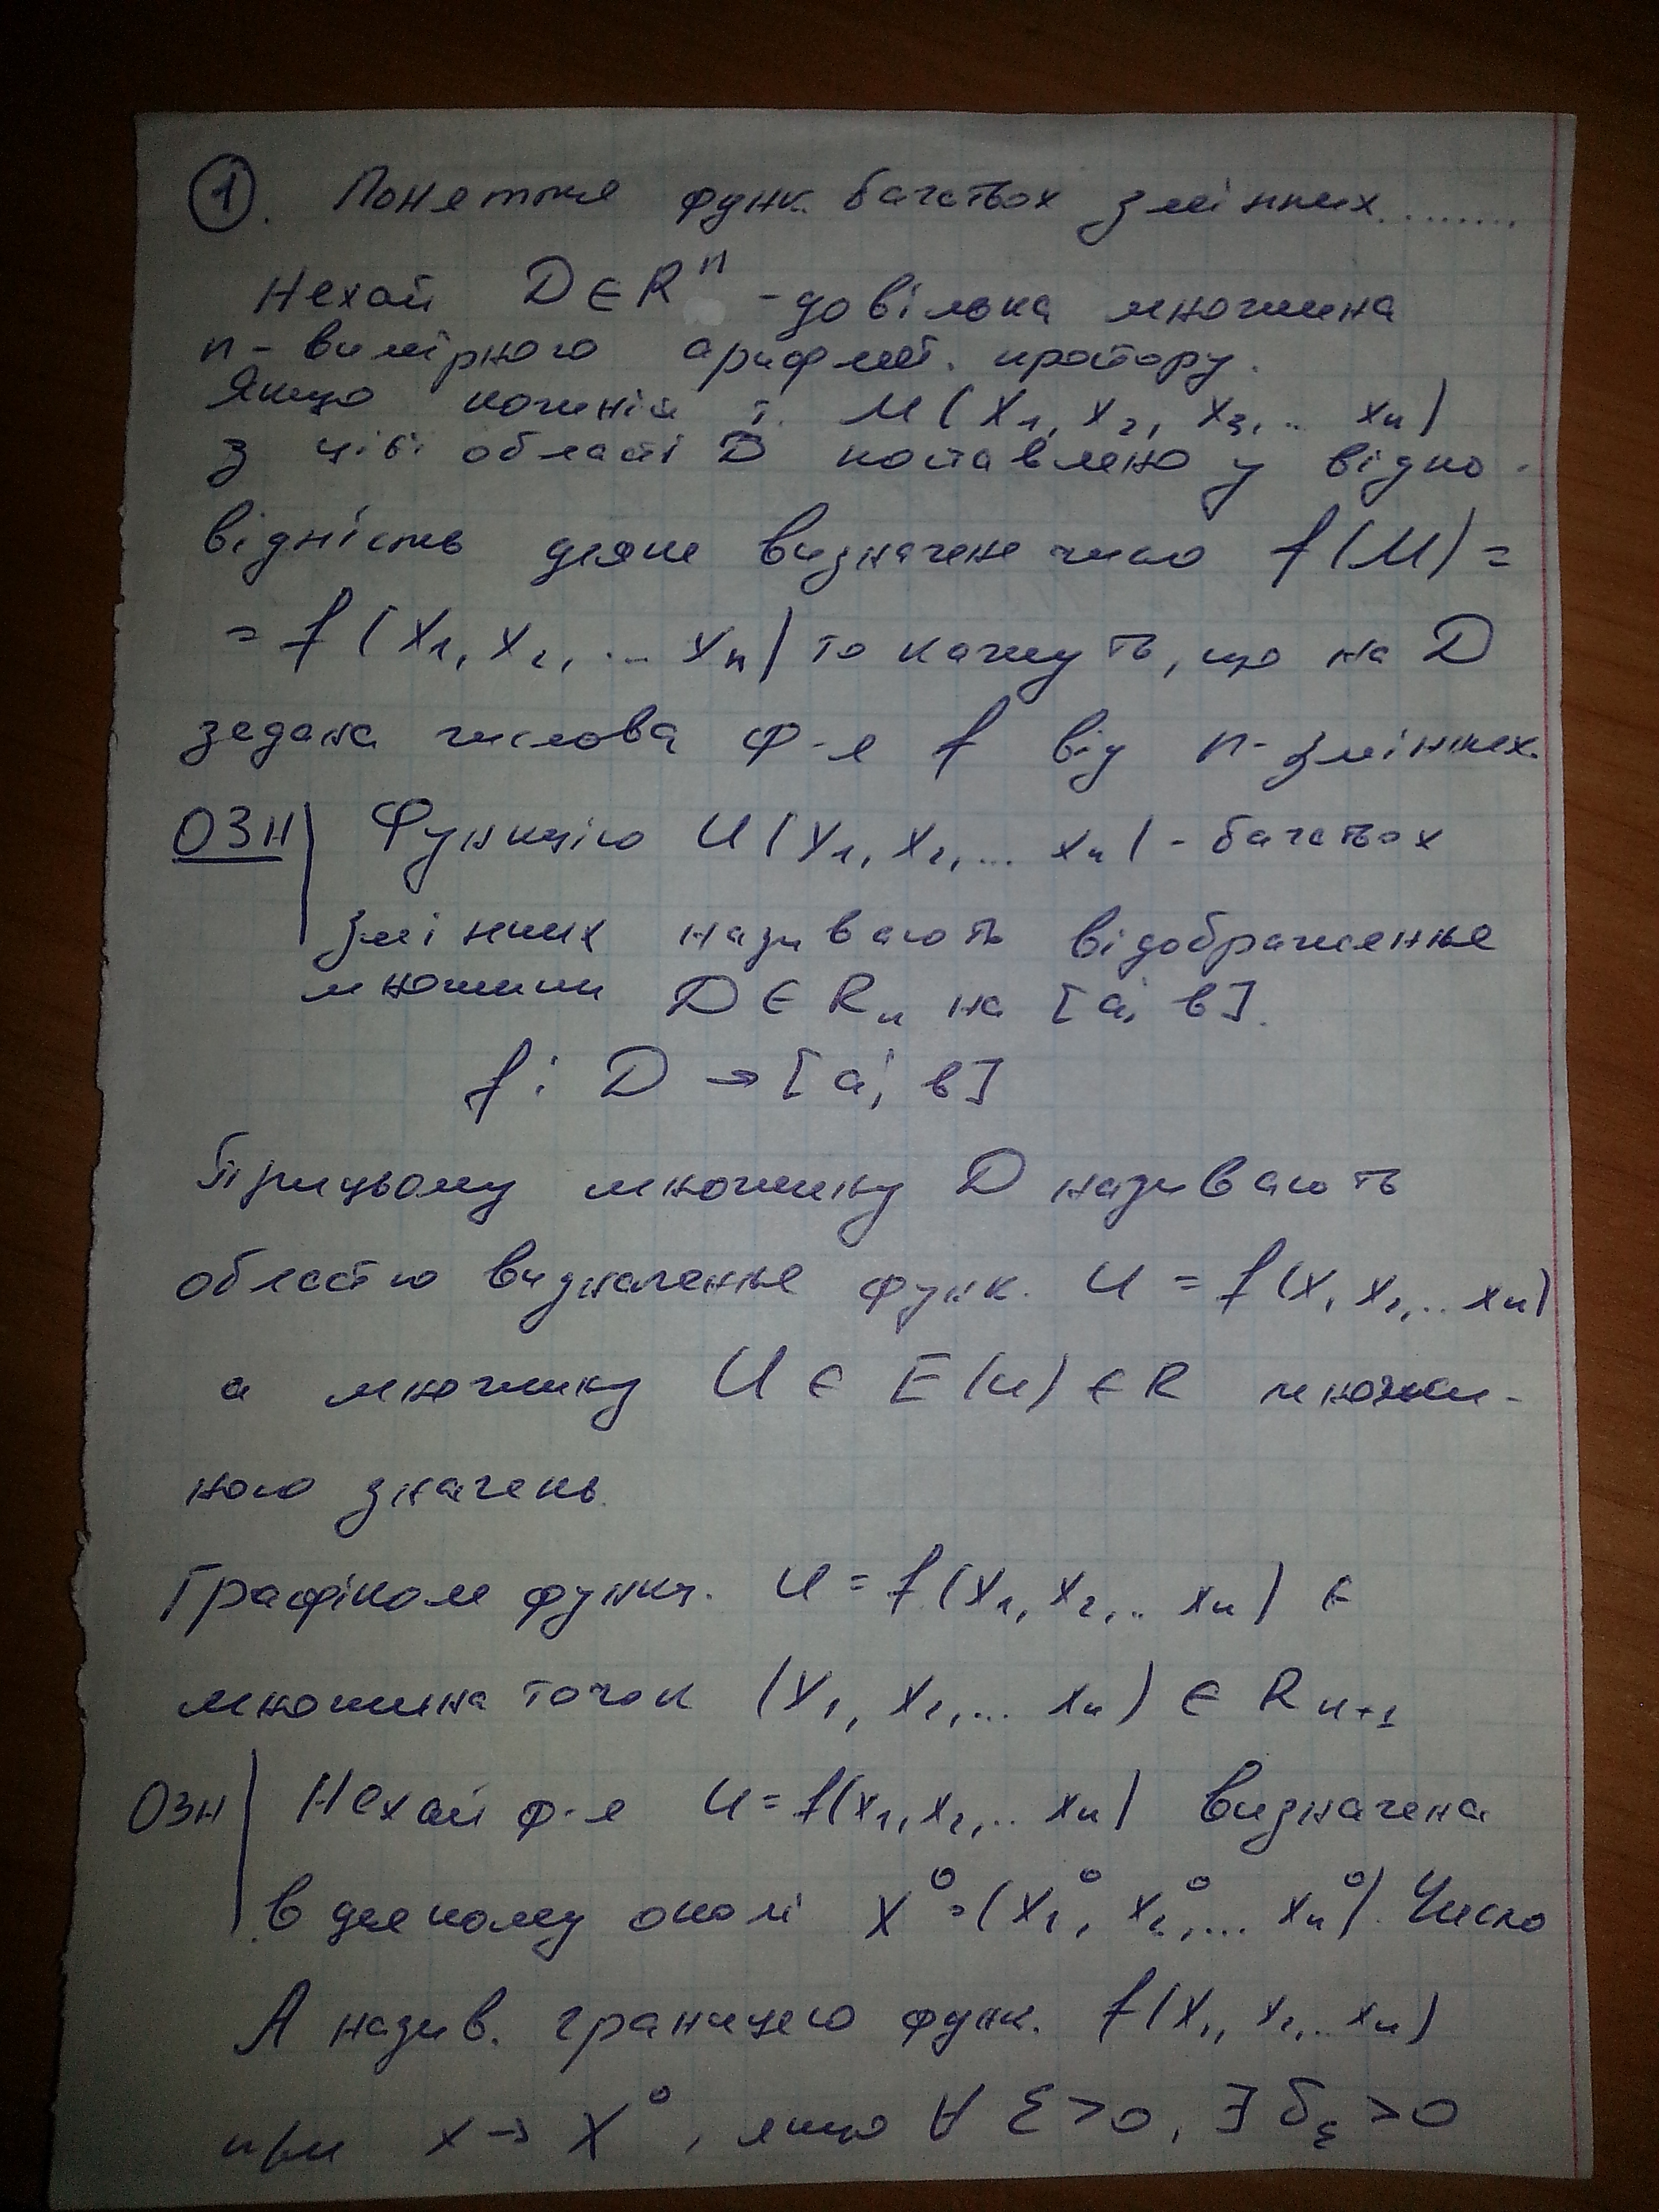 1. Поняття функ. багатьох змінних.........
Нехай D ∈ R^n - довільна множина
n - вимірного арифмет. простору.
Якщо кожній т. M(x₁, x₂, x₃,.. xₙ)
з цієї області D поставлено у відпо-
відність деяке визначене число f(M) =
= f(x₁, x₂, ... xₙ) то кажуть, що на D
задана числова ф-я f від n-змінних.
ОЗН | Функцією U(x₁, x₂,... xₙ) - багатьох
змінних називають відображення
множини D ∈ Rₙ на [a; в].
f : D → [a; в]
Прицьому множину D називають
областю визначення функ. U = f(x, x₂,.. xₙ)
а множину U ∈ E(u) ∈ R множи-
ною значень.
Графіком функц. U = f(x₁, x₂,.. xₙ) є
множина точок (x₁, x₂,... xₙ) ∈ Rₙ₊₁
ОЗН | Нехай ф-я U = f(x₁, x₂,.. xₙ) визначена
в деякому околі X⁰ = (x₁⁰, x₂⁰,... xₙ⁰). Число
A назив. границею функ. f(x₁, x₂,.. xₙ)
при x → X⁰, якщо ∀ ε > 0, ∃ δ_ε > 0